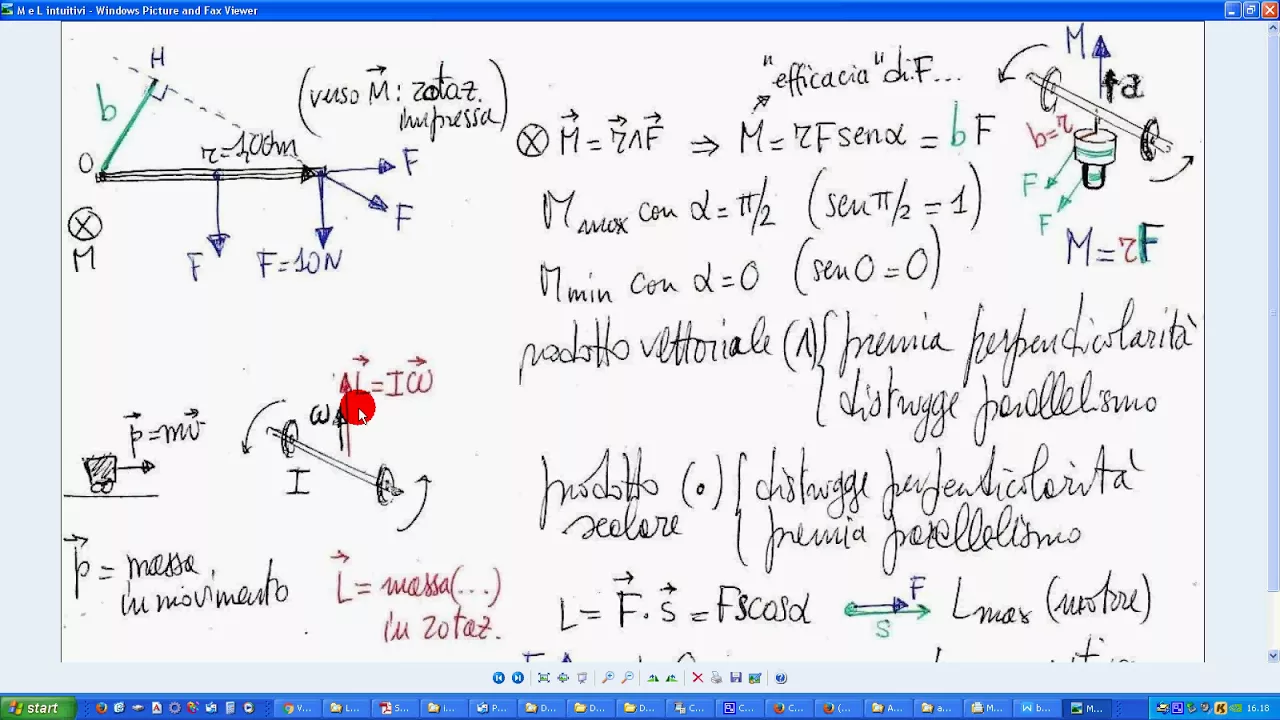 M e L intuitivi - Windows Picture and Fax Viewer
H
b
O
r=100cm
(verso M⃗: rotaz. impressa)
F
F
F
F=10N
⊗
M
"efficacia" di F...
⊗ M⃗ = r⃗∧F⃗ ⇒ M = rFsenα = bF
M
α
b=r
F
F
M=rF
Mmax con α = π/2 (senπ/2 = 1)
Mmin con α = 0 (sen0 = 0)
prodotto vettoriale (∧) { premia perpendicolarità
distrugge parallelismo
L⃗=Iω⃗
ω
p⃗=mv⃗
I
prodotto scalare (•) { distrugge perpendicolarità
premia parallelismo
p⃗ = massa in movimento
L⃗ = massa(...)
in rotaz.
L = F⃗ · s⃗ = Fscosα
F
s
Lmax (motore)
start
V...
L...
S...
I...
P...
D...
D...
D...
C...
C...
C...
(...
A...
A...
M...
b...
M...
16.18